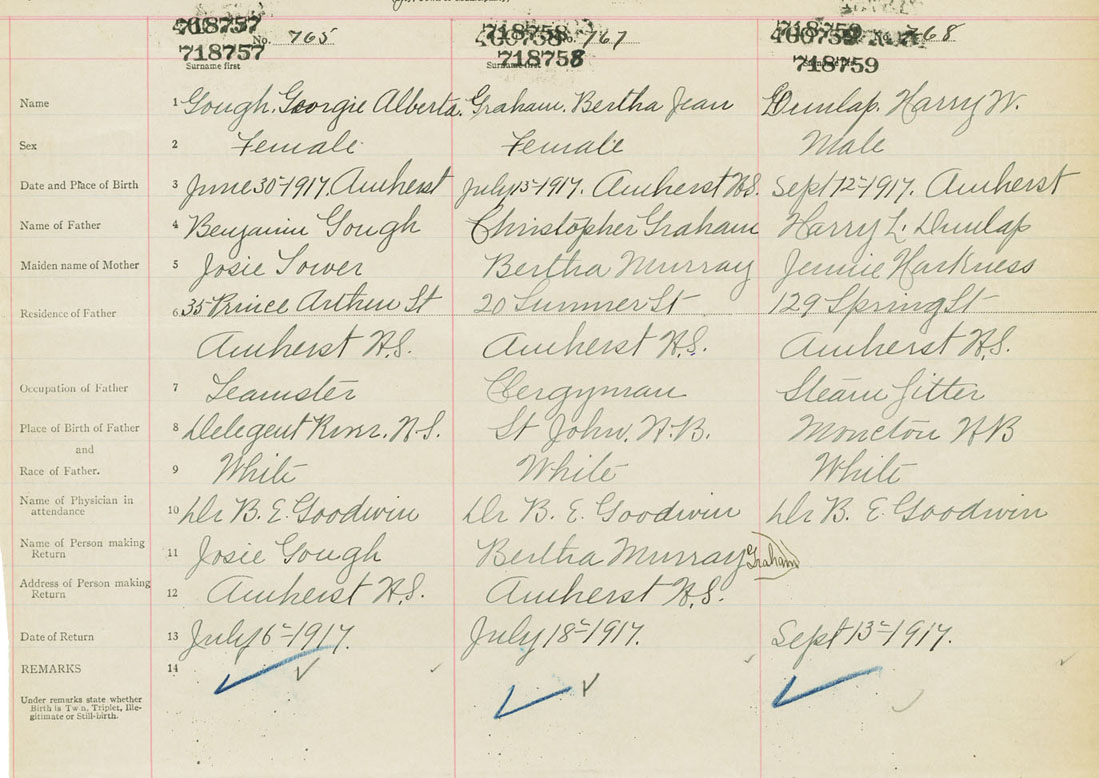 718757 718758 718759
No. 765 No. 767 No. 768
718757 718758 718759
Surname first Surname first
Name 1 Gough. Georgie Alberta. Graham. Bertha Jean Dunlap. Harry W.
Sex 2 Female Female Male
Date and Place of Birth 3 June 30-1917. Amherst July 15-1917. Amherst N.S. Sept 12-1917. Amherst
Name of Father 4 Benjamin Gough Christopher Graham Harry L. Dunlap
Maiden name of Mother 5 Josie Tower Bertha Murray Jennie Harkness
Residence of Father 6 35 Prince Arthur St 20 Summer St 129 Spring St
Amherst N.S. Amherst N.S. Amherst N.S.
Occupation of Father 7 Teamster Clergyman Steam fitter
Place of Birth of Father 8 Delegent River. N.S. St John. N.B. Moncton NB
and
Race of Father. 9 White White White
Name of Physician in
attendance 10 Dr B. E. Goodwin Dr B. E. Goodwin Dr B. E Goodwin
Name of Person making
Return 11 Josie Gough Bertha Murray Graham)
Address of Person making
Return 12 Amherst N.S. Amherst N.S.
Date of Return 13 July 16-1917. July 18-1917. Sept 13-1917.
REMARKS 14
Under remarks state whether
Birth is Twin, Triplet, Ille-
gitimate or Still-birth.